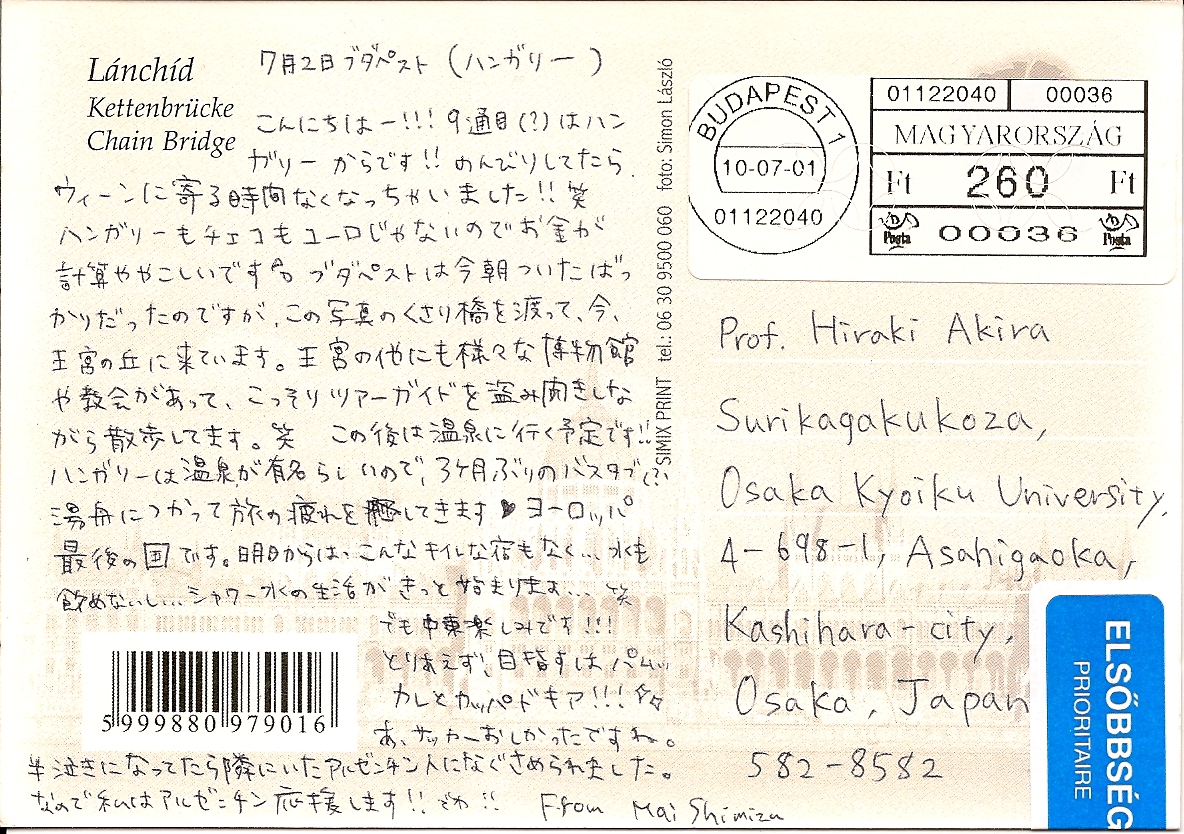 Lánchíd
Kettenbrücke
Chain Bridge
7月2日 ブダペスト (ハンガリー)
こんにちはー!!! 9通目(?)はハン
ガリー からです!! のんびりしてたら
ウィーンに寄る時間なくなっちゃいました!! 笑
ハンガリーもチェコもユーロじゃないのでお金が
計算ややこしいです ブダペストは今朝ついたばっ
かりだったのですが、この写真のくさり橋を渡って、今、
王宮の丘に来ています。王宮の他にも様々な博物館
や教会があって、こっそりツアーガイドを盗み聞きしな
がら散歩してます。笑 この後は温泉に行く予定です!!
ハンガリーは温泉が有名らしいので、3ヶ月ぶりのバスタブ(?)
湯舟につかって旅の疲れを癒してきます♥ ヨーロッパ
最後の国です。明日からは、こんなキイレな宿もなく... 水も
飲めないし... シャワー水の生活がきっと始まります... 笑
でも中東楽しみです!!!
とりあえず、目指すはパムッ
カレとカッパドキア!!! ☆☆
あ、サッカーおしかったですね。
半泣きになってたら隣にいたアルゼンチン人になぐさめられました。
なので私はアルゼンチン応援します!!
From Mai Shimizu
5 999880 979016
SIMIX PRINT tel.: 06 30 9500 060 foto: Simon László
BUDAPEST 1
10-07-01
01122040
01122040 00036
MAGYARORSZÁG
Ft 260 Ft
Posta 00036 Posta
Prof. Hiraki Akira
Surikagakukoza,
Osaka Kyoiku University,
4-698-1, Asahigaoka,
Kashihara-city,
Osaka, Japan
582-8582
ELSŐBBSÉG
PRIORITAIRE